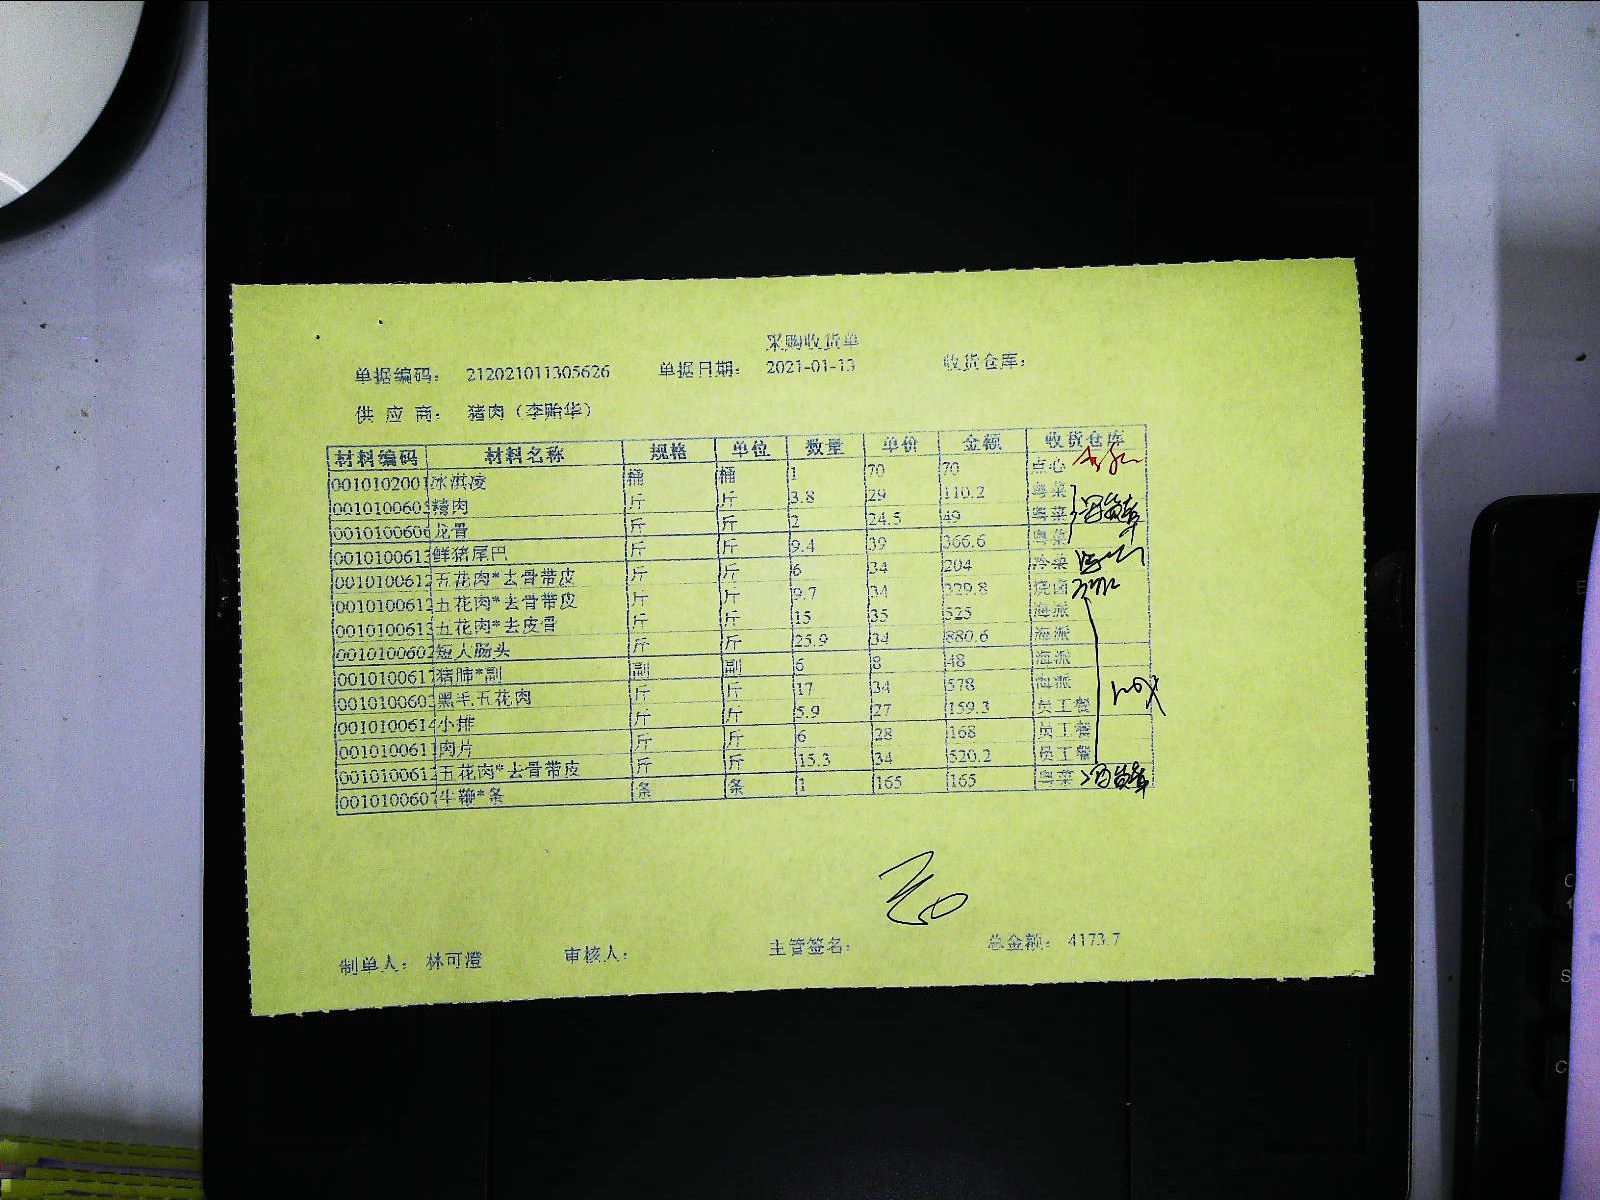 采购收货单
单据编码： 212021011305626 单据日期： 2021-01-13 收货仓库：
供 应 商： 猪肉（李贻华）
材料编码 材料名称 规格 单位 数量 单价 金额 收货仓库
0010102001 冰淇凌 桶 桶 1 70 70 点心
001010060 精肉 斤 斤 3.8 29 110.2 粤菜
001010060 龙骨 斤 斤 2 24.5 49 粤菜
001010061 鲜猪尾巴 斤 斤 9.4 39 366.6 粤菜
001010061 五花肉*去骨带皮 斤 斤 6 34 204 冷菜
001010061 五花肉*去骨带皮 斤 斤 9.7 34 329.8 烧卤
001010061 五花肉*去皮骨 斤 斤 15 35 525 海派
001010060 短人肠头 斤 斤 25.9 34 880.6 海派
001010061 猪肺*副 副 副 6 8 48 海派
001010060 黑毛五花肉 斤 斤 17 34 578 海派
001010061 小排 斤 斤 5.9 27 159.3 员工餐
001010061 肉片 斤 斤 6 28 168 员工餐
001010061 五花肉*去骨带皮 斤 斤 15.3 34 520.2 员工餐
001010060 牛鞭*条 条 条 1 165 165 粤菜
制单人： 林可澄 审核人： 主管签名： 总金额： 4173.7